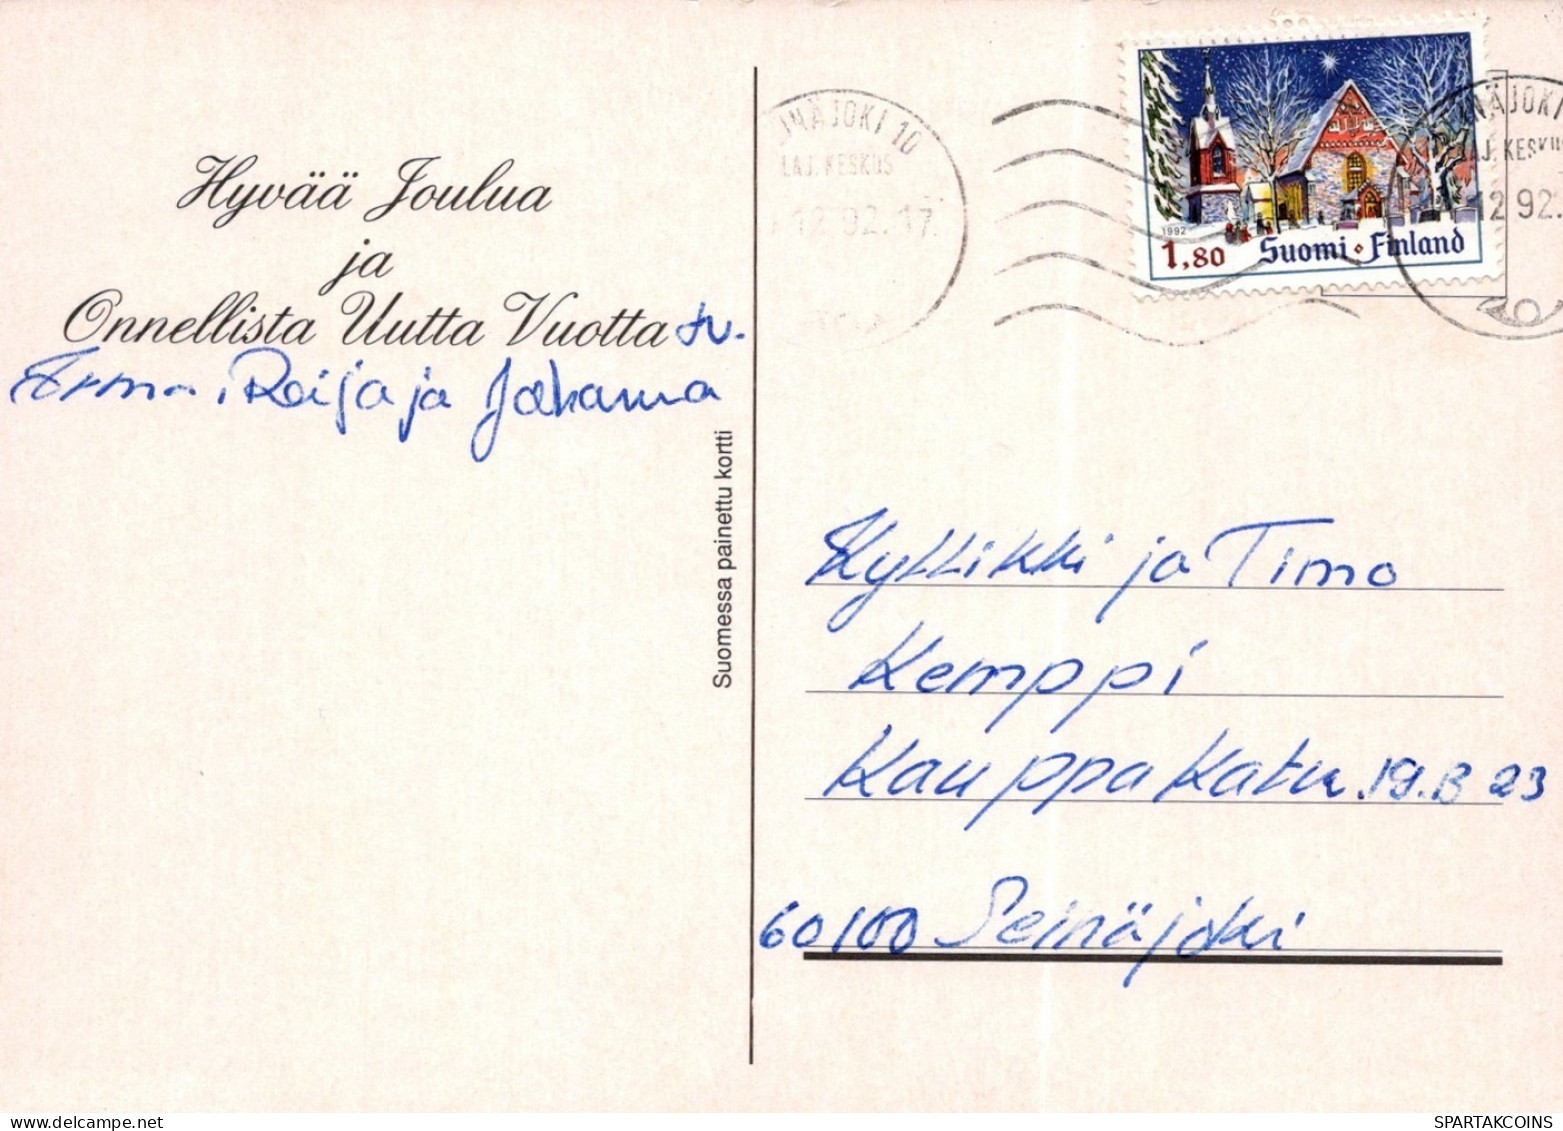 Hyvää Joulua
ja
Onnellista Uutta Vuotta tv.
Raija ja Johanna
Suomessa painettu kortti
INÄJOKI 10
LAJ. KESKUS
12.92.-17
1992
1,80 Suomi • Finland
INÄJOKI
LAJ. KESKUS
12 92.
Kyllikki ja Timo
Kemppi
Kauppakatu.19.B 23
60100 Seinäjoki
SPARTAKCOINS